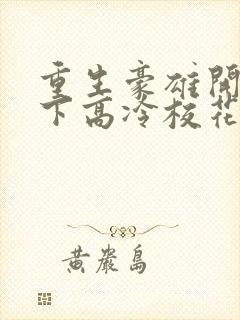 重生豪雄開
下高冷校花
黃巖島